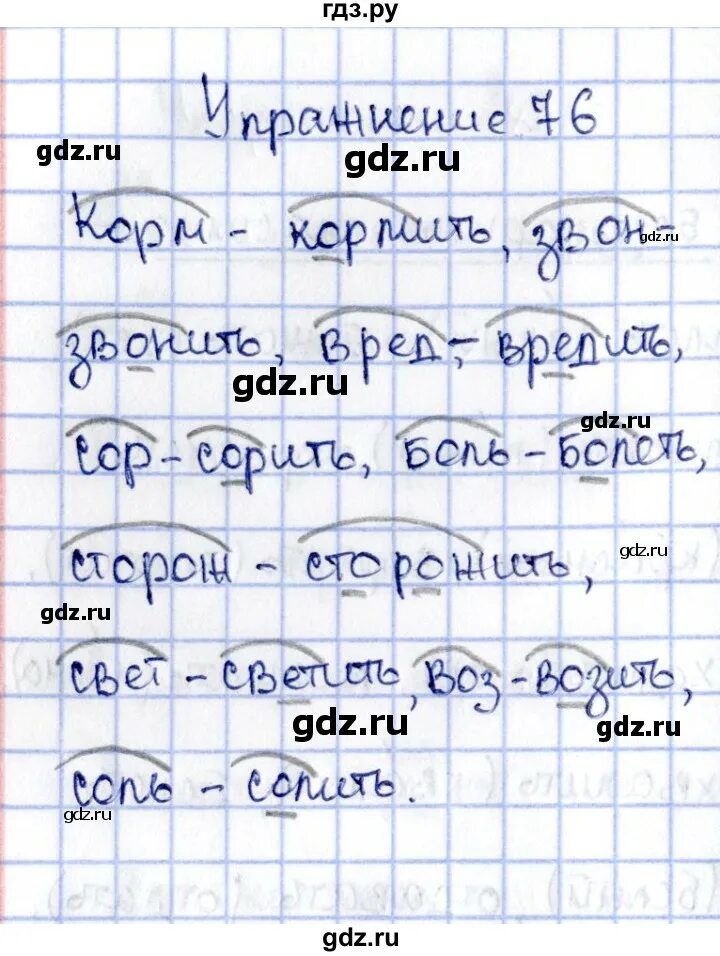 гдз.ру
Упражнение 76
gdz.ru
gdz.ru
Корм - кормить, звон-
gdz.ru
звонить, вред, - вредить,
gdz.ru
gdz.ru
сор - сорить, боль - болеть,
gdz.ru
сторож - сторожить,
gdz.ru
свет - светить, воз - возить,
gdz.ru
gdz.ru
соль - солить.
gdz.ru
gdz.ru